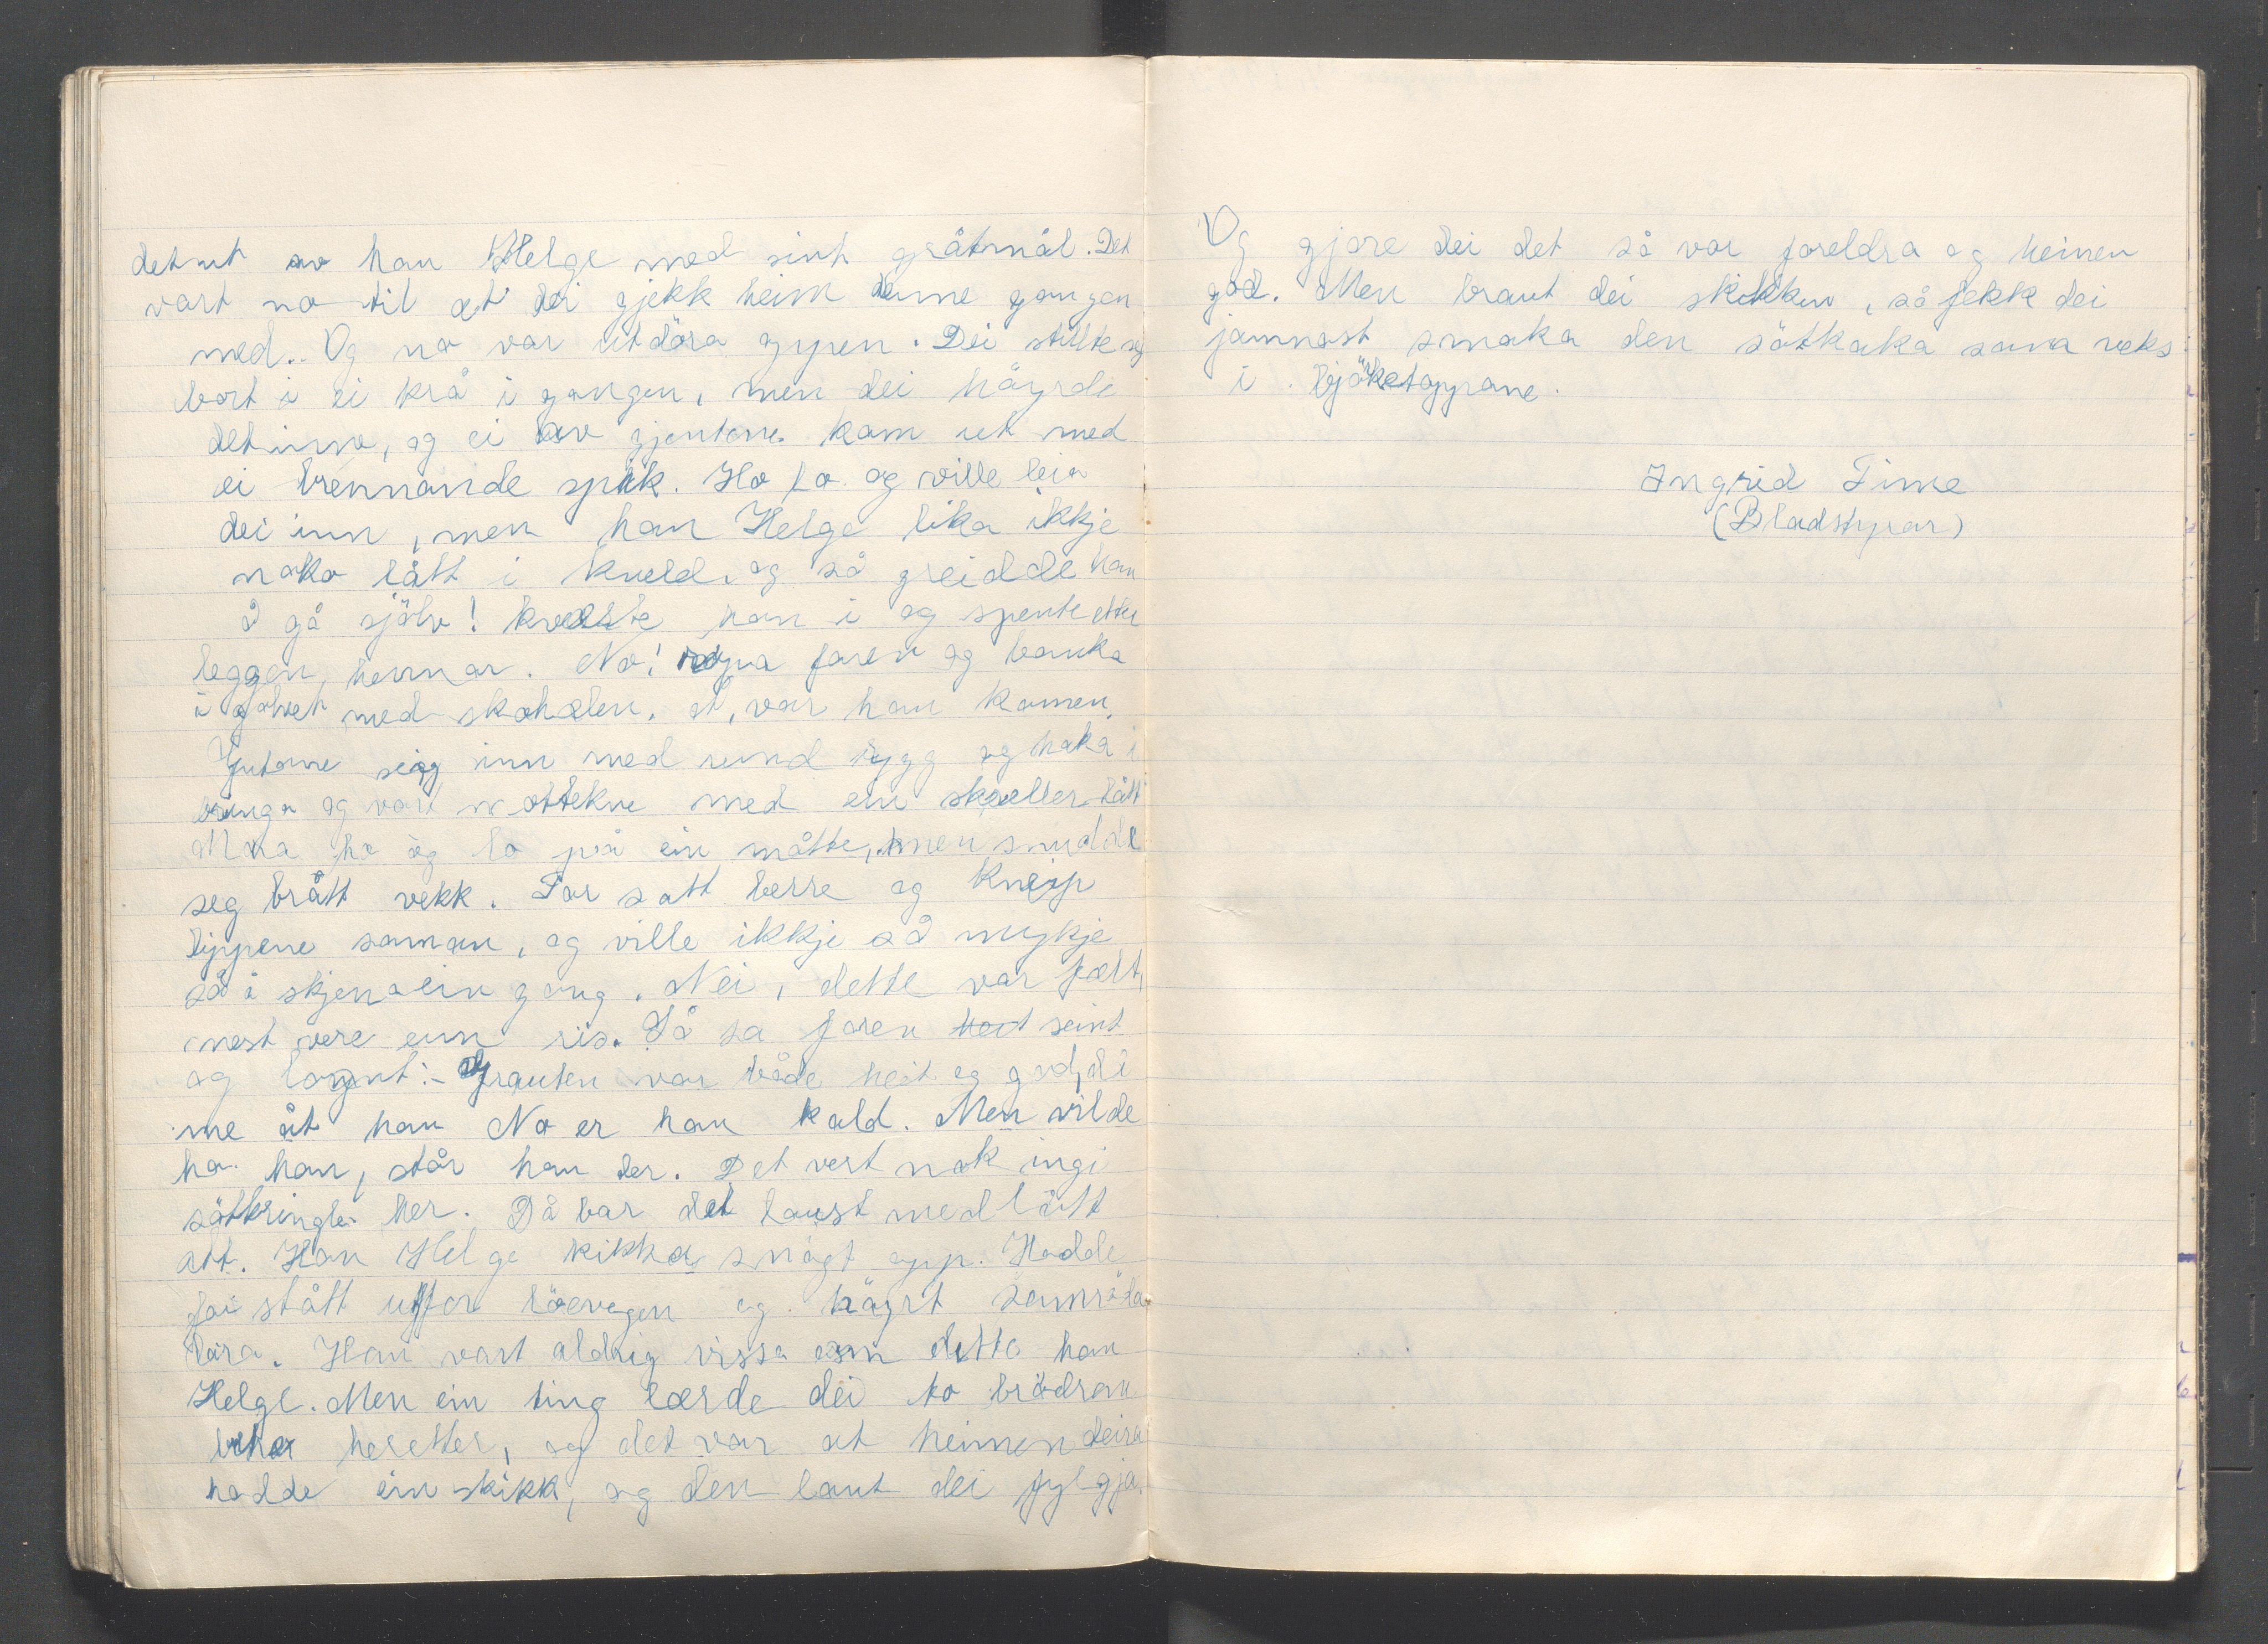 det ut av han Helge med sint gråtmål. Det
vart no til at dei gjekk heim denne gangen
med. Og no var utdöra oppen. Dei stillte seg
bort i ei krå i gangen, men dei höyrde
det inno, og ei av gjentone kom ut med
ei brennande spik. Ho lo og ville leia
dei inn, men han Helge lika ikkje
noko lått i kveld, og så greidde han
å gå sjölv! kveste han i og spente etter
leggen hennar. No! ropa faren og banka
i golvet med skohælen. at, var han komen.
Gutane seig inn med rund rygg og haka i
bringa og vart mottekne med ein skreller lått
Mora ho òg lo på ein måtte, men snudde
seg brått vekk. Far satt berre og kneip
lippene saman, og ville ikkje så mykje
så å skjena ein gong. Nei, dette var fælt,
mest vere enn ris. Så sa faren seint
og longt:- grauten var både heit og god, di
me åt han No er han kald. Men vilde
ha han, står han der. Det vert nok ingi
sötkringle her. Då bar det laust med lått
att. Han Helge kikka snögt opp. Hadde
far stått utfor löevegen og höyrt samröda
deira. Han vart aldrig vissa om dette han
Helge. Men ein ting lærde dei to brödran
heretter, og det var at heimen deira
hadde ein skikk, og den laut dei fylgja.
Og gjore dei det så var foreldra og heimen
god. Men braut dei skikken, så fekk dei
jamnast smaka den sötkaka som veks
i bjöketoppane.
Ingrid Time
(Bladstyrar)